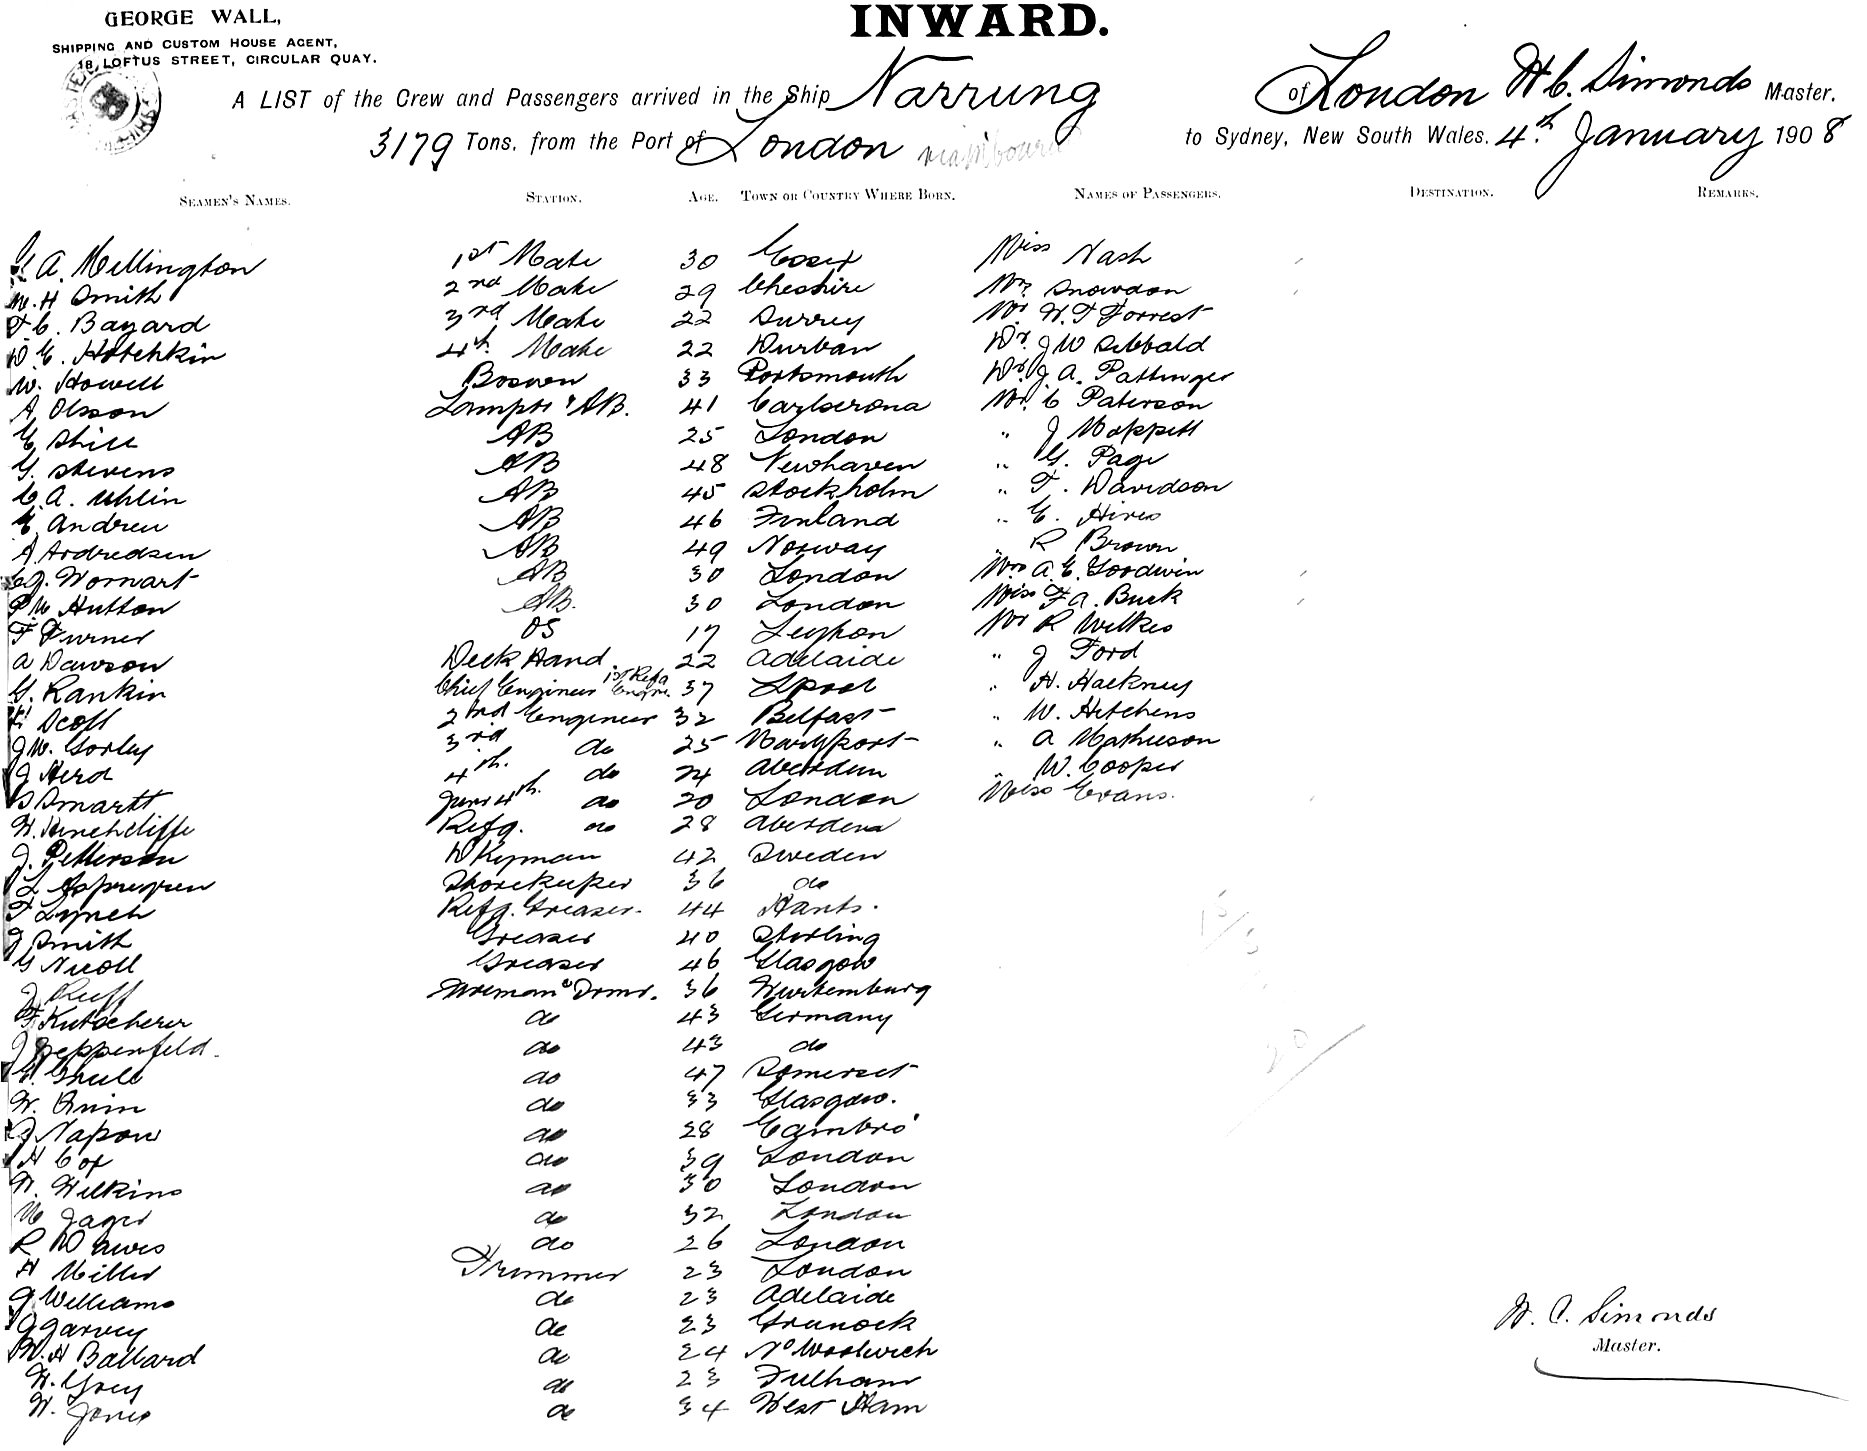 GEORGE WALL,
SHIPPING AND CUSTOM HOUSE AGENT,
18, LOFTUS STREET, CIRCULAR QUAY.
INWARD.
A LIST of the Crew and Passengers arrived in the Ship Narrung of London H C. Simonds Master.
3179 Tons, from the Port of London to Sydney, New South Wales. 4th January 1908
SEAMEN'S NAMES. STATION. AGE. TOWN OR COUNTRY WHERE BORN. NAMES OF PASSENGERS. DESTINATION. REMARKS.
A. Mellington 1st Mate 30 Essex Miss Nash
H Smith 2nd Mate 29 Cheshire Snowdon
C. Bayard 3rd Mate 22 Surrey Mr W. T Forrest
E. Hotchkin 4th. Mate 22 Durban Dr. J W Sibbald
W. Howell Boswn 33 Portsmouth Dr. J. A. Pattinger
A Olsson Lamps & AB. 41 Carlscrona Mr. C Paterson
E Shill AB 25 London " J Moppett
G. Stevens AB 48 Newhaven " G. Page
C. A. Uhlin AB 45 Stockholm " F. Davidson
E Andrew AB 46 Finland " E. Hives
A Ardredsen AB 49 Norway " R Brown
Wornart AB 30 London Mrs A. E. Goodwin
Hutton AB. 30 London Miss F A. Buck
F Turner OS 17 Leyton Mr R Wilkes
A Dawson Deck Hand. 22 Adelaide " J Ford
G. Rankin Chief Engineer 1st Refg Engnr. 37 Lpool " H. Hackney
Scott 2nd Engineer 32 Belfast " W. Hitchens
J W. Gorley 3rd do 25 Maryport " A Mathieson
J Herd 4th. do 24 Aberdeen " W. Cooper
S Smartt Junr 4th. do 20 London Miss Evans.
H. Hinchcliffe Refg. do 28 Aberdeen
J. Petterson Dkyman 42 Sweden
L Storekeeper 36 do
T Lynch Refg. Greaser. 44 Hants.
J Smith Greaser 40 Stirling
G Nicoll Greaser 46 Glasgow
J Ruff Fireman & Trmr. 36 Wurtemburg
F Kutscherer do 43 Germany
J Heppenfeld. do 43 do
do 47 Somerset
W. Quin do 33 Glasgow.
J Napow do 28 Cambro'
H Cox do 39 London
W. Wilkins do 30 London
M Jager do 32 London
R Dawes do 26 London
H Miller Trimmer 23 London
J Williams do 23 Adelaide
J Garvey do 23 Grunock
H Ballard do 24 No Woolwich
W. Grey do 23 Fulham
W. Jones do 34 West Ham
H. C. Simonds
Master.